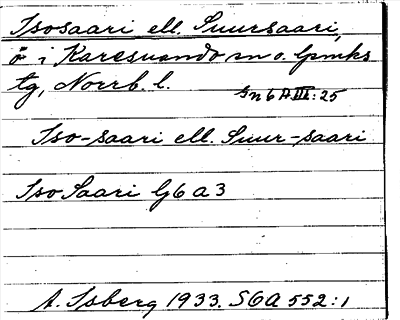 Isosaari ell. Suursaari,
ö i Karesuando sn o. lpmks
tg, Norrb. l.
Gn 6 A III: 25
Iso-saari ell. Suur-saari
Iso Saari G6a3
A. Isberg 1933. S6A 552:1